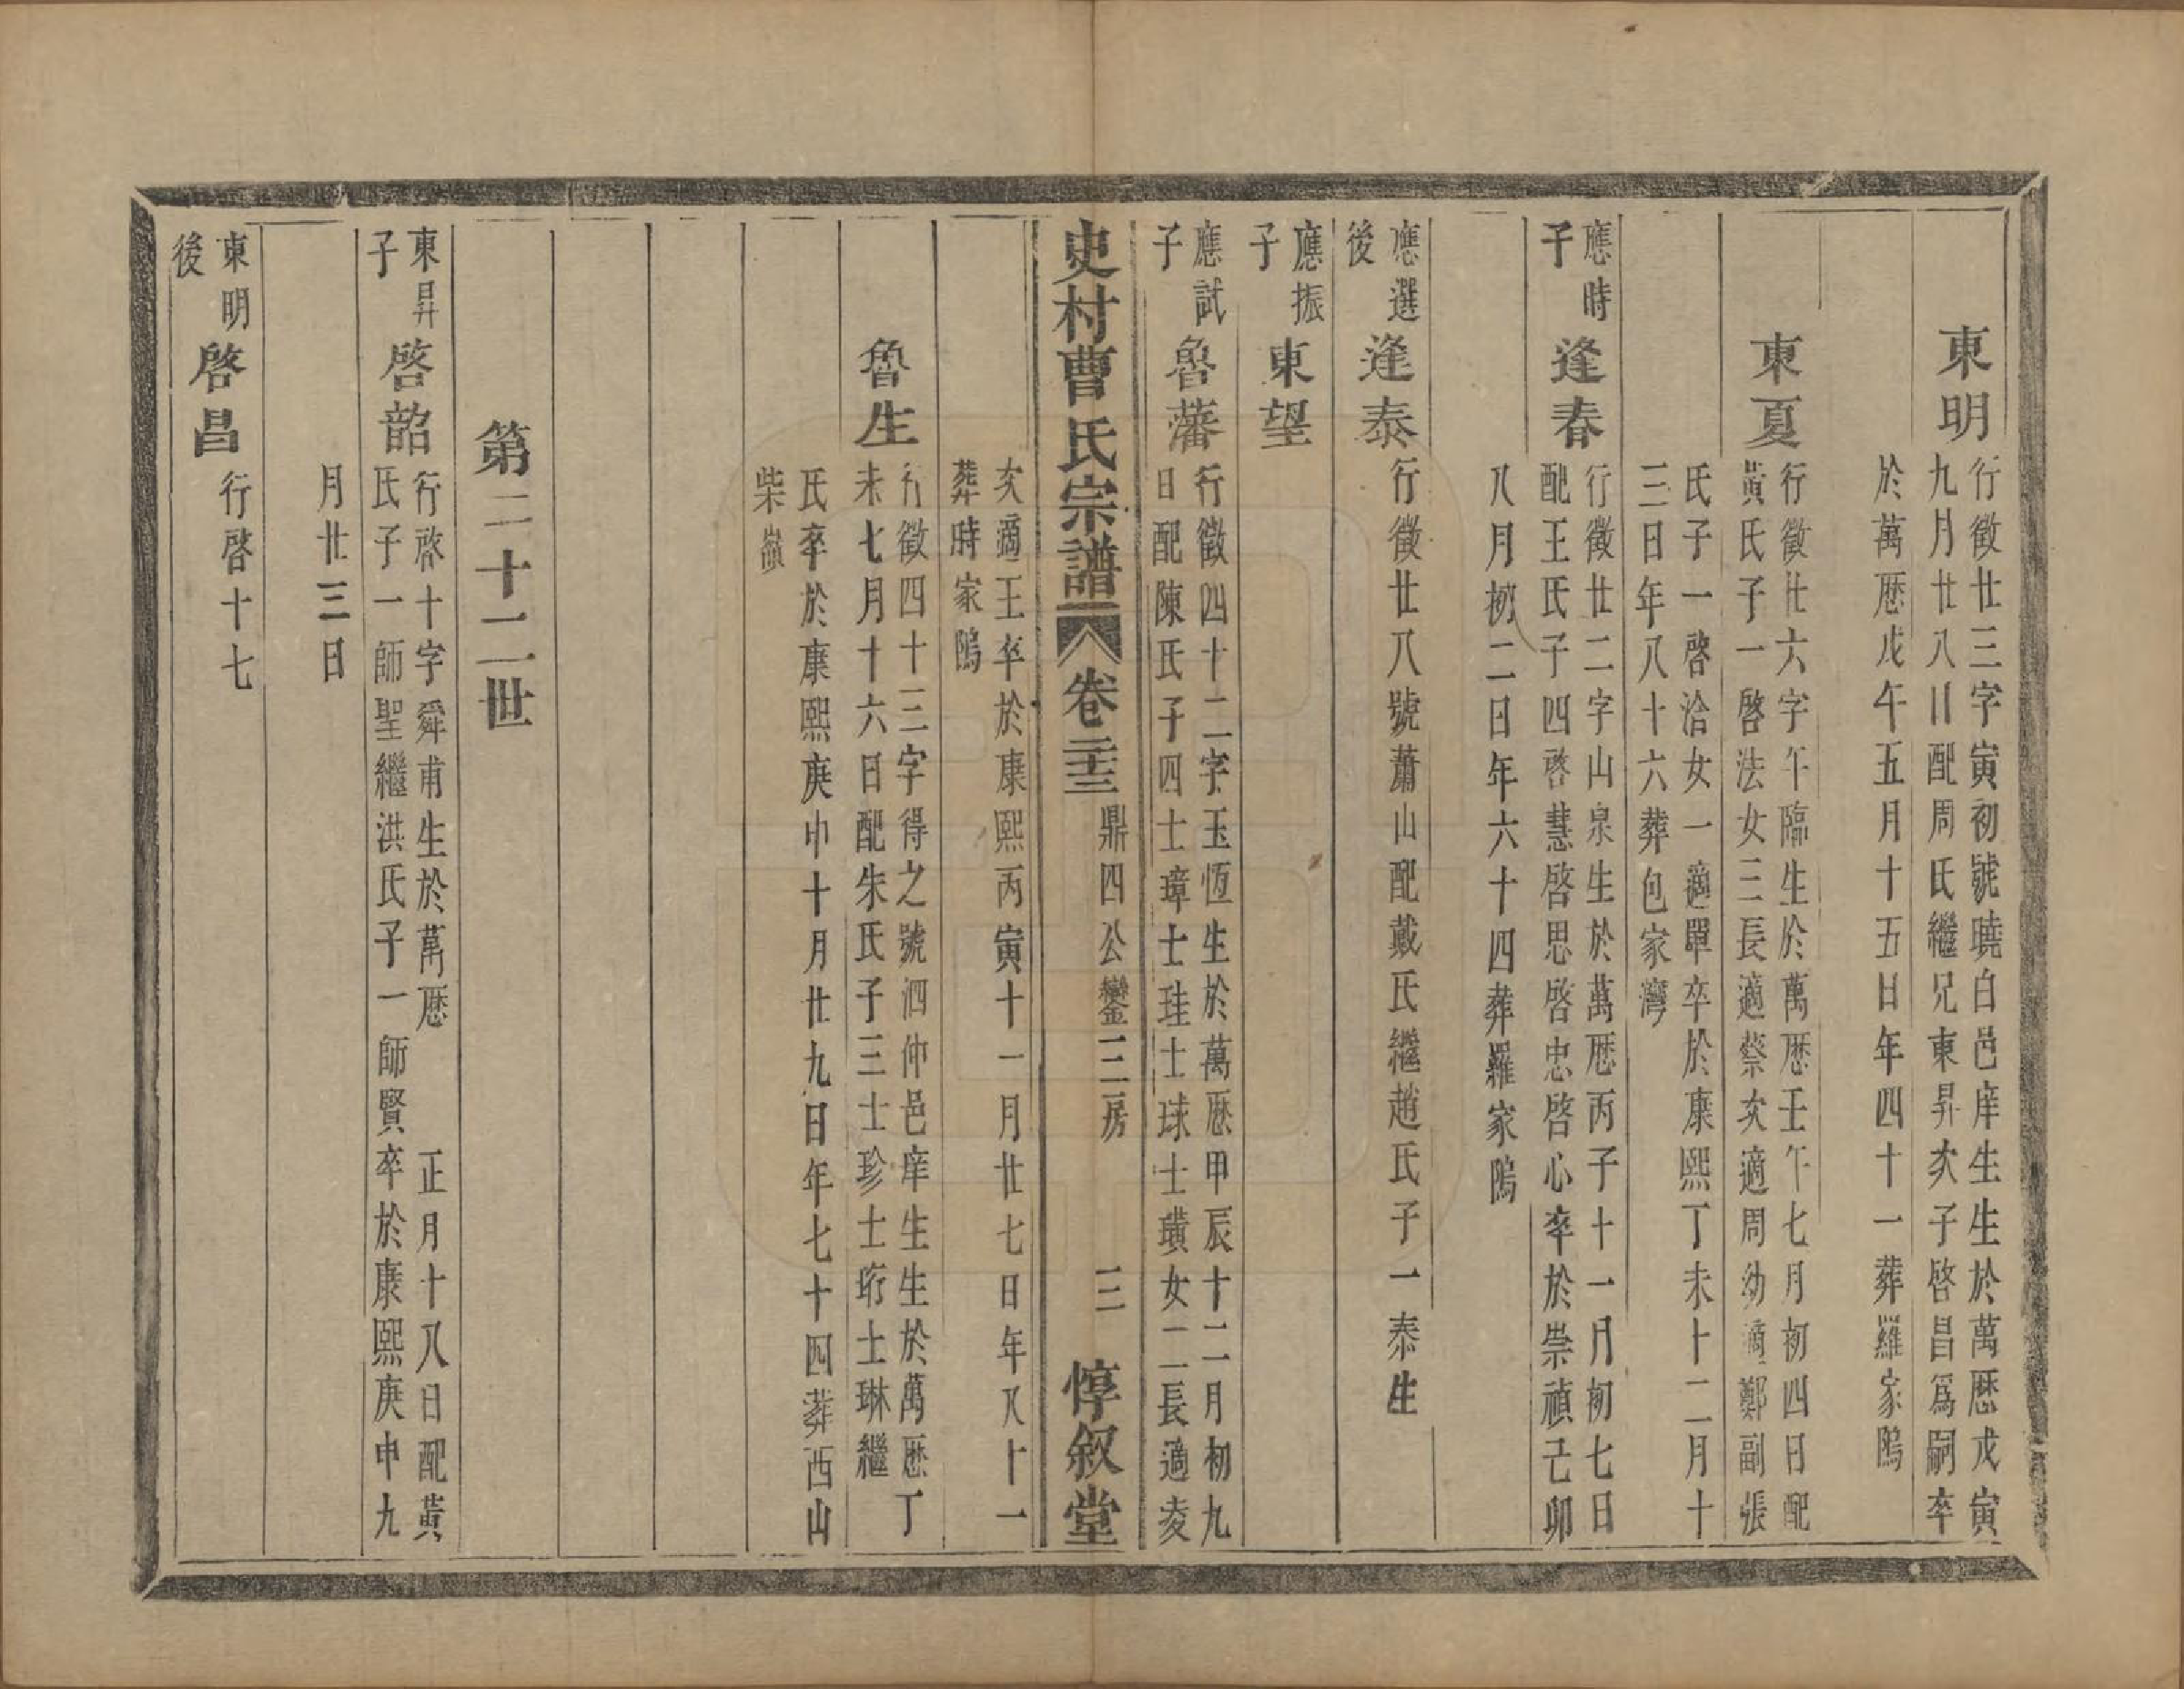 東明
行徵廿三字寅初號曉白邑庠生生於萬歷戊寅
九月廿八日配周氏繼兄東昇次子啓昌爲嗣卒
於萬歷戊午五月十五日年四十一葬羅家隖
東夏
行徵廿六字午臨生於萬歷壬午七月初四日配
黃氏子一啓法女三長適蔡次適周幼適鄭副張
氏子一啓洽女一適單卒於康熙丁未十二月十
三日年八十六葬包家灣
應時
子
逢春
行徵廿二字山泉生於萬歷丙子十一月初七日
配王氏子四啓慧啓思啓忠啓心卒於崇禎己卯
八月初二日年六十四葬羅家隖
應選
後
逢泰
行徵廿八號蕭山配戴氏繼趙氏子一泰生
應振
子
東望
應試
子
魯藩
行徵四十二字玉恆生於萬歷甲辰十二月初九
日配陳氏子四士璋士珪士球士璜女二長適凌
史村曹氏宗譜
卷二十三
鼎四公鑾三房
三
惇叙堂
次適王卒於康熙丙寅十一月廿七日年八十一
葬時家隖
魯生
行徵四十三字得之號泗仲邑庠生生於萬歷丁
未七月十六日配朱氏子三士珍士珩士琳繼
氏卒於康熙庚申十月廿九日年七十四葬西山
柴嶺
第二十二世
東昇
子
啓韶
行啓十字舜甫生於萬歷 正月十八日配黃
氏子一師聖繼洪氏子一師賢卒於康熙庚申九
月廿三日
東明
後
啓昌
行啓十七